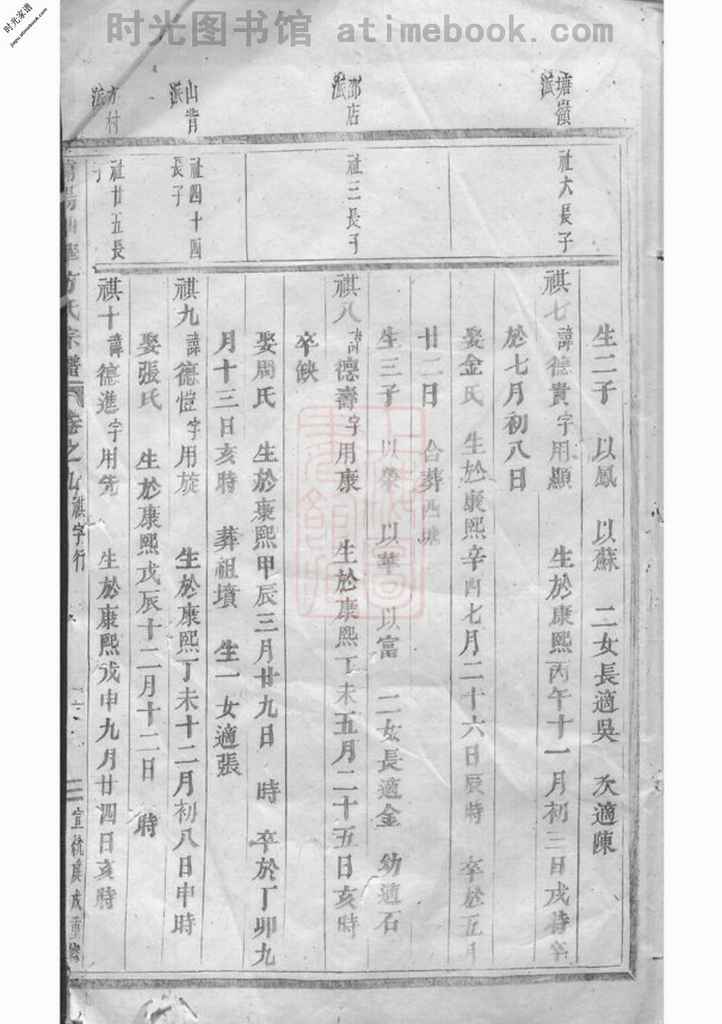 时光图书馆 - atimebook.com
时光家谱
jiapu.atimebook.com
塘嶺派
社六長子
生二子 以鳳 以蘇 二女長適吳 次適陳
祺七 諱德貴字用顯 生於康熙丙午十一月初三日戌時卒
於七月初八日
娶金氏 生於康熙辛酉七月二十六日辰時 卒於五月
廿二日 合葬西塘
店派
社三長子
生三子 以榮 以華 以富 二女長適金 幼適石
祺八 諱德壽字用康 生於康熙丁未五月二十五日亥時
卒缺
娶周氏 生於康熙甲辰三月廿九日 時 卒於丁卯九
月十三日亥時 葬祖墳 生一女適張
山背派
社四十四長子
祺九 諱德愷字用旋 生於康熙丁未十二月初八日申時
娶張氏 生於康熙戊辰十二月十二日 時
方村派
社廿五長子
祺十 諱德進字用先 生於康熙戊申九月廿四日亥時
方氏宗譜 卷之 祺字行 宣統庚戌重修